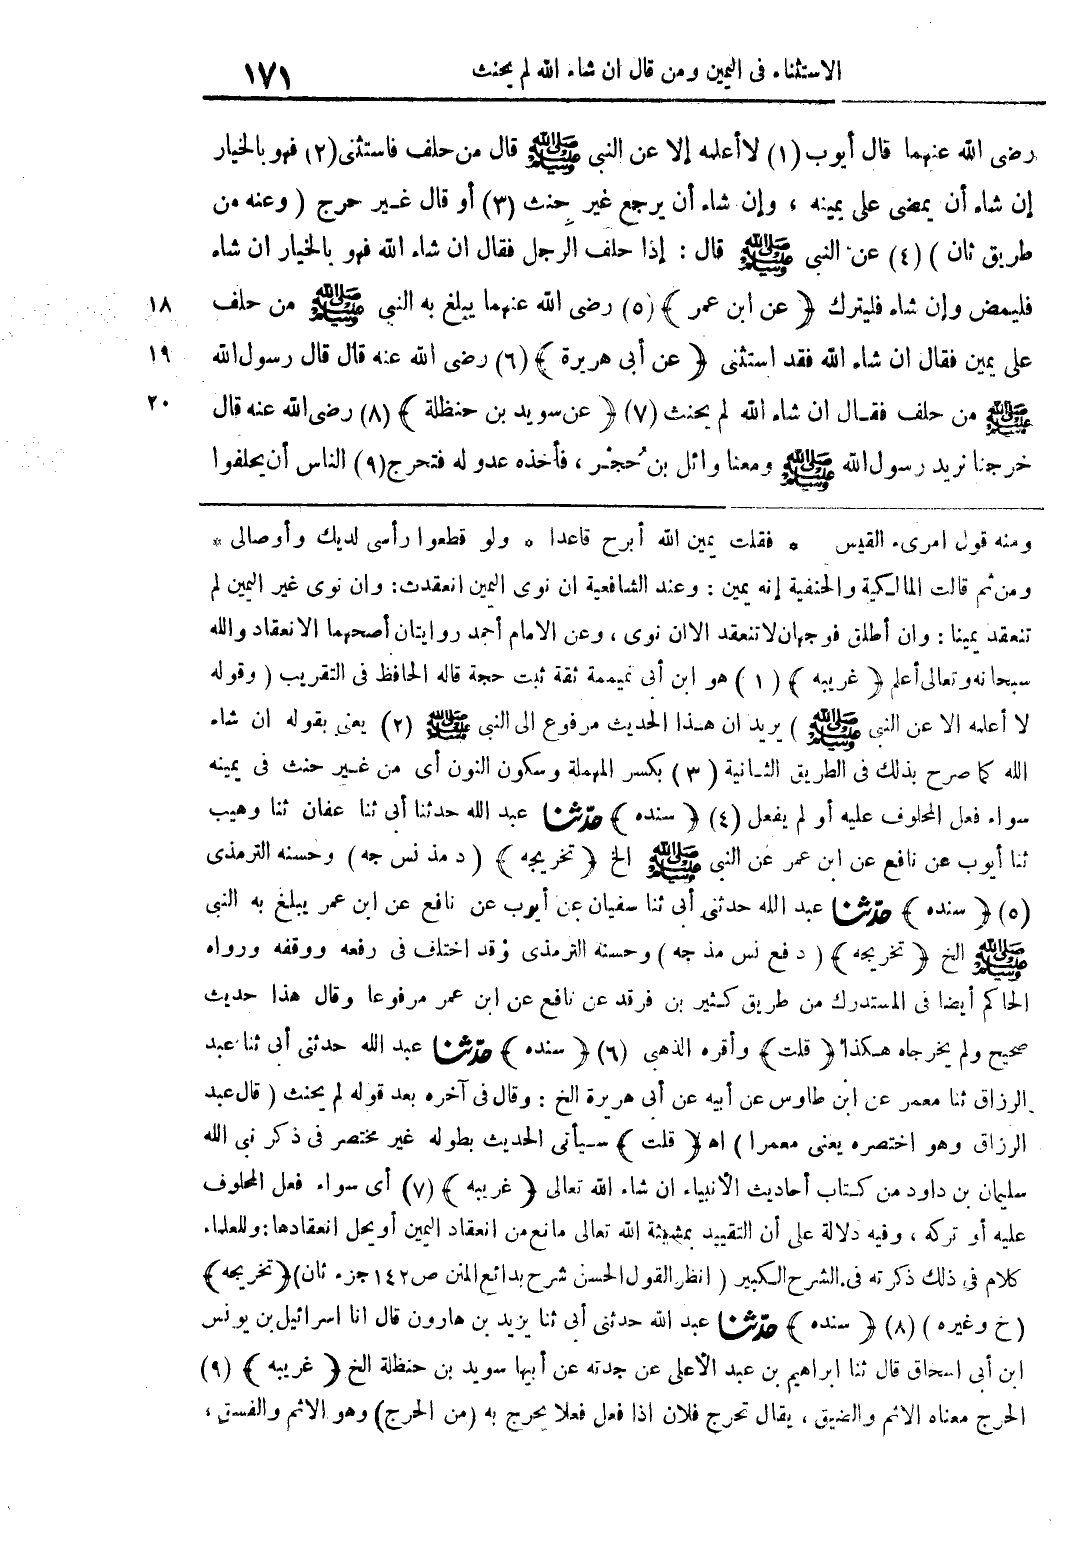 الاستثناء فى اليمين ومن قال ان شاء الله لم يحنث ١٧١
رضى الله عنهما قال أيوب (١) لاأعلمه إلا عن النبى ﷺ قال من حلف فاستثنى (٢) فهو بالخيار
إن شاء أن يمضى على يمينه ، وإن شاء أن يرجع غير حِنث (٣) أو قال غير حرج ( وعنه من
طريق ثان ) (٤) عن النبى ﷺ قال : إذا حلف الرجل فقال ان شاء الله فهو بالخيار ان شاء
فليمض وإن شاء فليترك ﴿ عن ابن عمر ﴾ (٥) رضى الله عنهما يبلغ به النبى ﷺ من حلف ١٨
على يمين فقال ان شاء الله فقد استثنى ﴿ عن أبى هريرة ﴾ (٦) رضى الله عنه قال قال رسول الله ١٩
ﷺ من حلف فقال ان شاء الله لم يحنث (٧) ﴿ عن سويد بن حنظلة ﴾ (٨) رضى الله عنه قال ٢٠
خرجنا نريد رسول الله ﷺ ومعنا وائل بن حُجْر ، فأخذه عدو له فتحرج (٩) الناس أن يحلفوا
ومنه قول امرىء القيس * فقلت يمين الله أبرح قاعدا * ولو قطعوا رأسى لديك وأوصالى *
ومن ثم قالت المالكية والحنفية إنه يمين : وعند الشافعية ان نوى اليمين انعقدت: وان نوى غير اليمين لم
تنعقد يمينا : وان أطلق فوجهان لاتنعقد الاان نوى ، وعن الامام أحمد روايتان أصحهما الانعقاد والله
سبحانه وتعالى أعلم ﴿ غريبه ﴾ (١) هو ابن أبى تميمة ثقة ثبت حجة قاله الحافظ فى التقريب ( وقوله
لا أعلمه الا عن النبى ﷺ ) يريد ان هذا الحديث مرفوع الى النبى ﷺ (٢) يعنى بقوله ان شاء
الله كما صرح بذلك فى الطريق الثانية (٣) بكسر المهملة وسكون النون أى من غير حنث فى يمينه
سواء فعل المحلوف عليه أو لم يفعل (٤) ﴿ سنده ﴾ حدّثنا عبد الله حدثنا أبى ثنا عفان ثنا وهيب
ثنا أيوب عن نافع عن ابن عمر عن النبى ﷺ الخ ﴿ تخريجه ﴾ ( د مذ نس جه ) وحسنه الترمذى
(٥) ﴿ سنده ﴾ حدّثنا عبد الله حدثنى أبى ثنا سفيان عن أيوب عن نافع عن ابن عمر يبلغ به النبى
ﷺ الخ ﴿ تخريجه ﴾ ( د فع نس مذ جه ) وحسنه الترمذى وقد اختلف فى رفعه ووقفه ورواه
الحاكم أيضا فى المستدرك من طريق كثير بن فرقد عن نافع عن ابن عمر مرفوعا وقال هذا حديث
صحيح ولم يخرجاه هكذا ﴿ قلت ﴾ وأقره الذهبى (٦) ﴿ سنده ﴾ حدّثنا عبد الله حدثنى أبى ثنا عبد
الرزاق ثنا معمر عن ابن طاوس عن أبيه عن أبى هريرة الخ : وقال فى آخره بعد قوله لم يحنث ( قال عبد
الرزاق وهو اختصره يعنى معمرا ) اه ﴿ قلت ﴾ سيأتى الحديث بطوله غير مختصر فى ذكر نبى الله
سليمان بن داود من كتاب أحاديث الأنبياء ان شاء الله تعالى ﴿ غريبه ﴾ (٧) أى سواء فعل المحلوف
عليه أو تركه ، وفيه دلالة على أن التقييد بمشيئة الله تعالى مانع من انعقاد اليمين أو يحل انعقادها: وللعلماء
كلام فى ذلك ذكرته فى الشرح الكبير ( انظر القول الحسن شرح بدائع المنن ص ١٤٢ جزء ثان) ﴿ تخريجه ﴾
( خ وغيره ) (٨) ﴿ سنده ﴾ حدّثنا عبد الله حدثنى أبى ثنا يزيد بن هارون قال انا اسرائيل بن يونس
ابن أبى اسحاق قال ثنا ابراهيم بن عبد الأعلى عن جدته عن أبيها سويد بن حنظلة الخ ﴿ غريبه ﴾ (٩)
الحرج معناه الاثم والضيق ، يقال تحرج فلان اذا فعل فعلا يحرج به (من الحرج) وهو الاثم والفسق ،